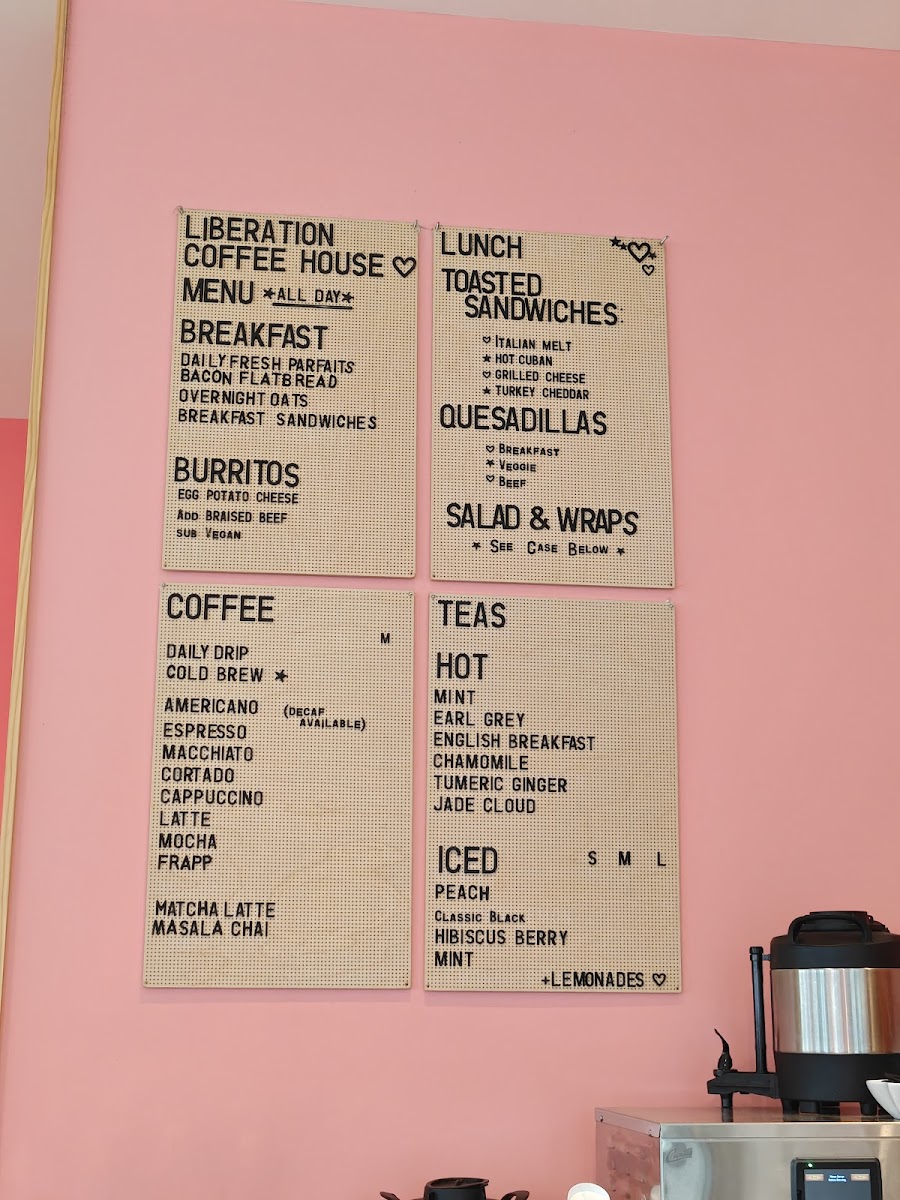 LIBERATION
COFFEE HOUSE ♡
MENU ★ALL DAY★
BREAKFAST
DAILY FRESH PARFAITS
BACON FLATBREAD
OVERNIGHT OATS
BREAKFAST SANDWICHES
BURRITOS
EGG POTATO CHEESE
ADD BRAISED BEEF
SUB VEGAN
LUNCH
TOASTED
SANDWICHES:
♡ ITALIAN MELT
★ HOT CUBAN
♡ GRILLED CHEESE
★ TURKEY CHEDDAR
QUESADILLAS
♡ BREAKFAST
★ VEGGIE
♡ BEEF
SALAD & WRAPS
★ SEE CASE BELOW ★
COFFEE
M
DAILY DRIP
COLD BREW ★
AMERICANO (DECAF
AVAILABLE)
ESPRESSO
MACCHIATO
CORTADO
CAPPUCCINO
LATTE
MOCHA
FRAPP
MATCHA LATTE
MASALA CHAI
TEAS
HOT
MINT
EARL GREY
ENGLISH BREAKFAST
CHAMOMILE
TUMERIC GINGER
JADE CLOUD
ICED S M L
PEACH
CLASSIC BLACK
HIBISCUS BERRY
MINT
+LEMONADES ♡